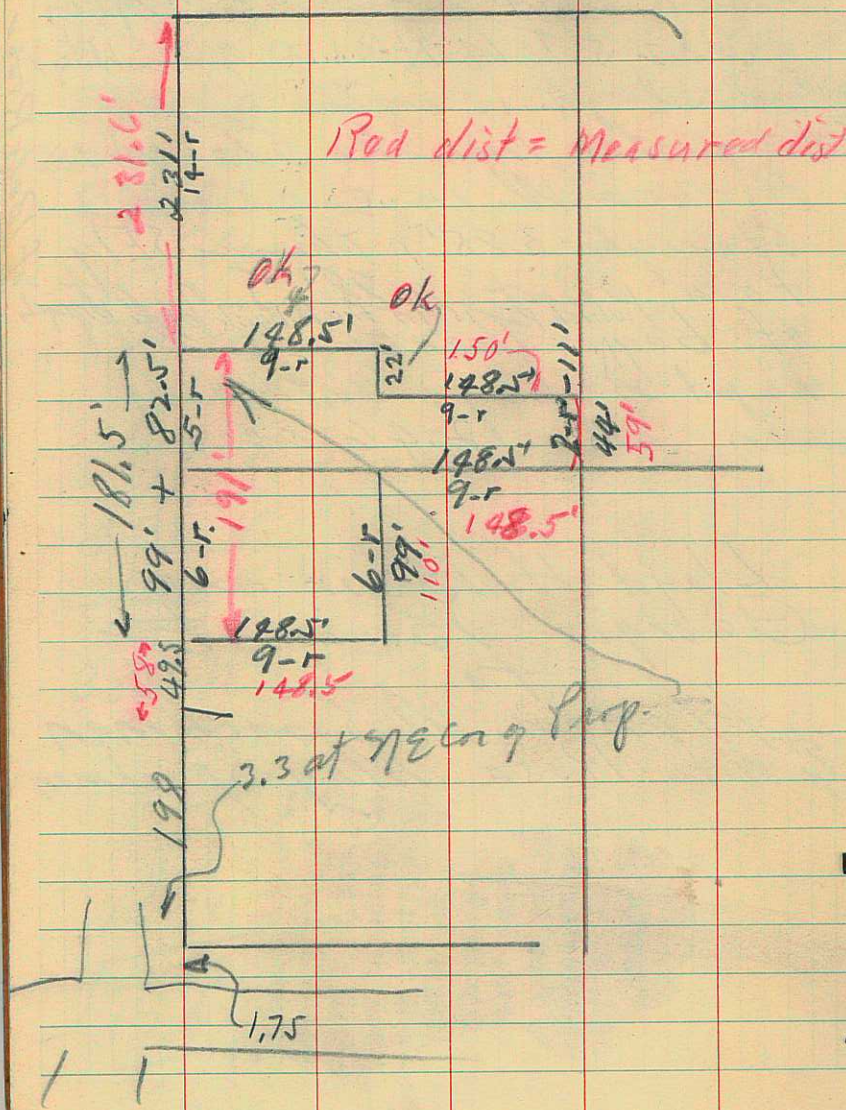 Red dist = Measured dist
231.6'
231'
14-r
ok
ok
148.5'
9-r
22'
150'
148.5'
9-r
2-r-11'
44'
59'
181.5'
99' + 82.5'
5-r
191'
6-r.
148.5'
9-r
148.5'
6-r
99'
110'
148.5'
9-r
148.5
58
49.5
3.3 at Cor of Prop.
198
1.75